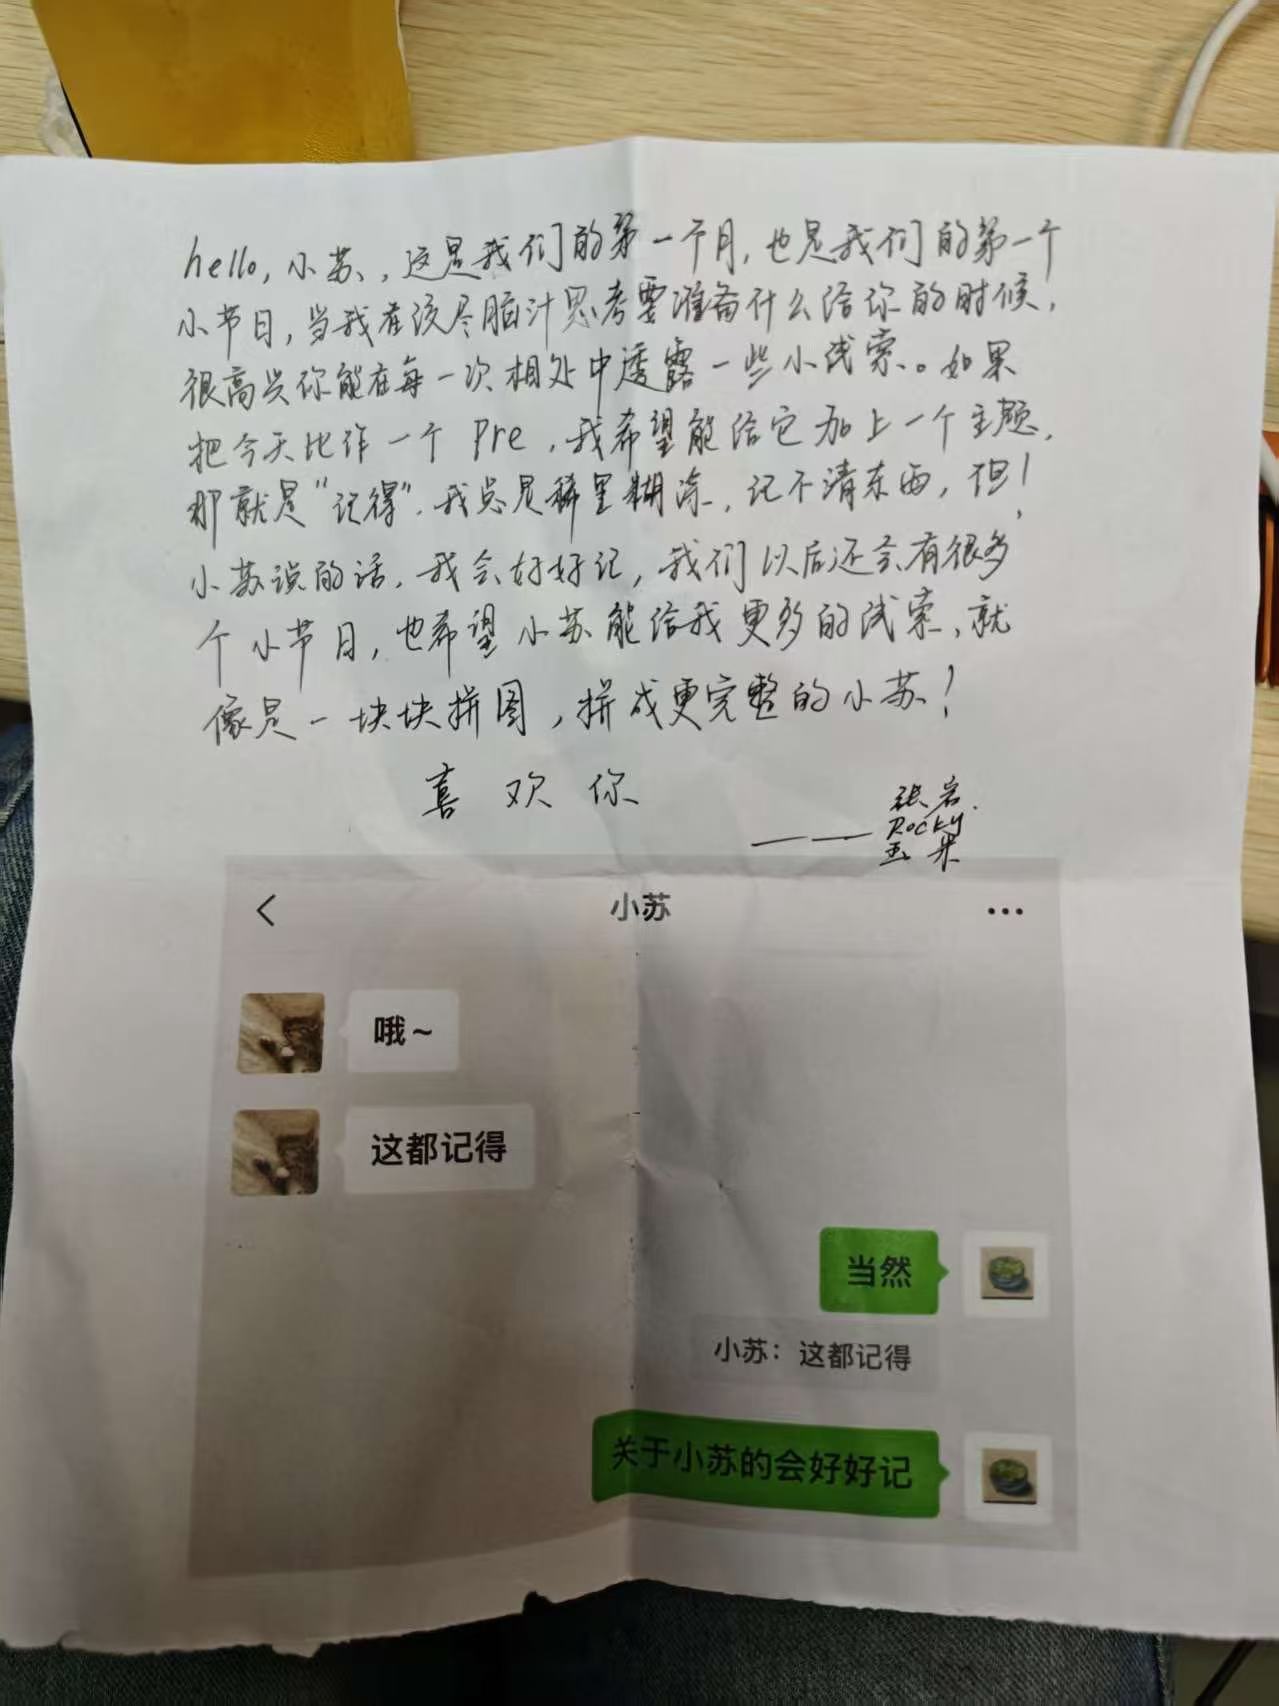 hello,小苏,这是我们的第一个月,也是我们的第一个
小节日,当我在该尽脑汁思考要准备什么给你的时候,
很高兴你能在每一次相处中透露一些小线索。如果
把今天比作一个 Pre,我希望能给它加上一个主题,
那就是"记得".我总是稀里糊涂,记不清东西,但!
小苏说的话,我会好好记,我们以后还会有很多
个小节日,也希望小苏能给我更多的线索,就
像是一块块拼图,拼成更完整的小苏!
喜欢你
——张岩.
Rocky
玉米
小苏
哦~
这都记得
当然
小苏:这都记得
关于小苏的会好好记